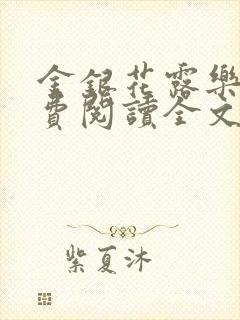 金銀花露樂
費閱讀全文
紫夏沐